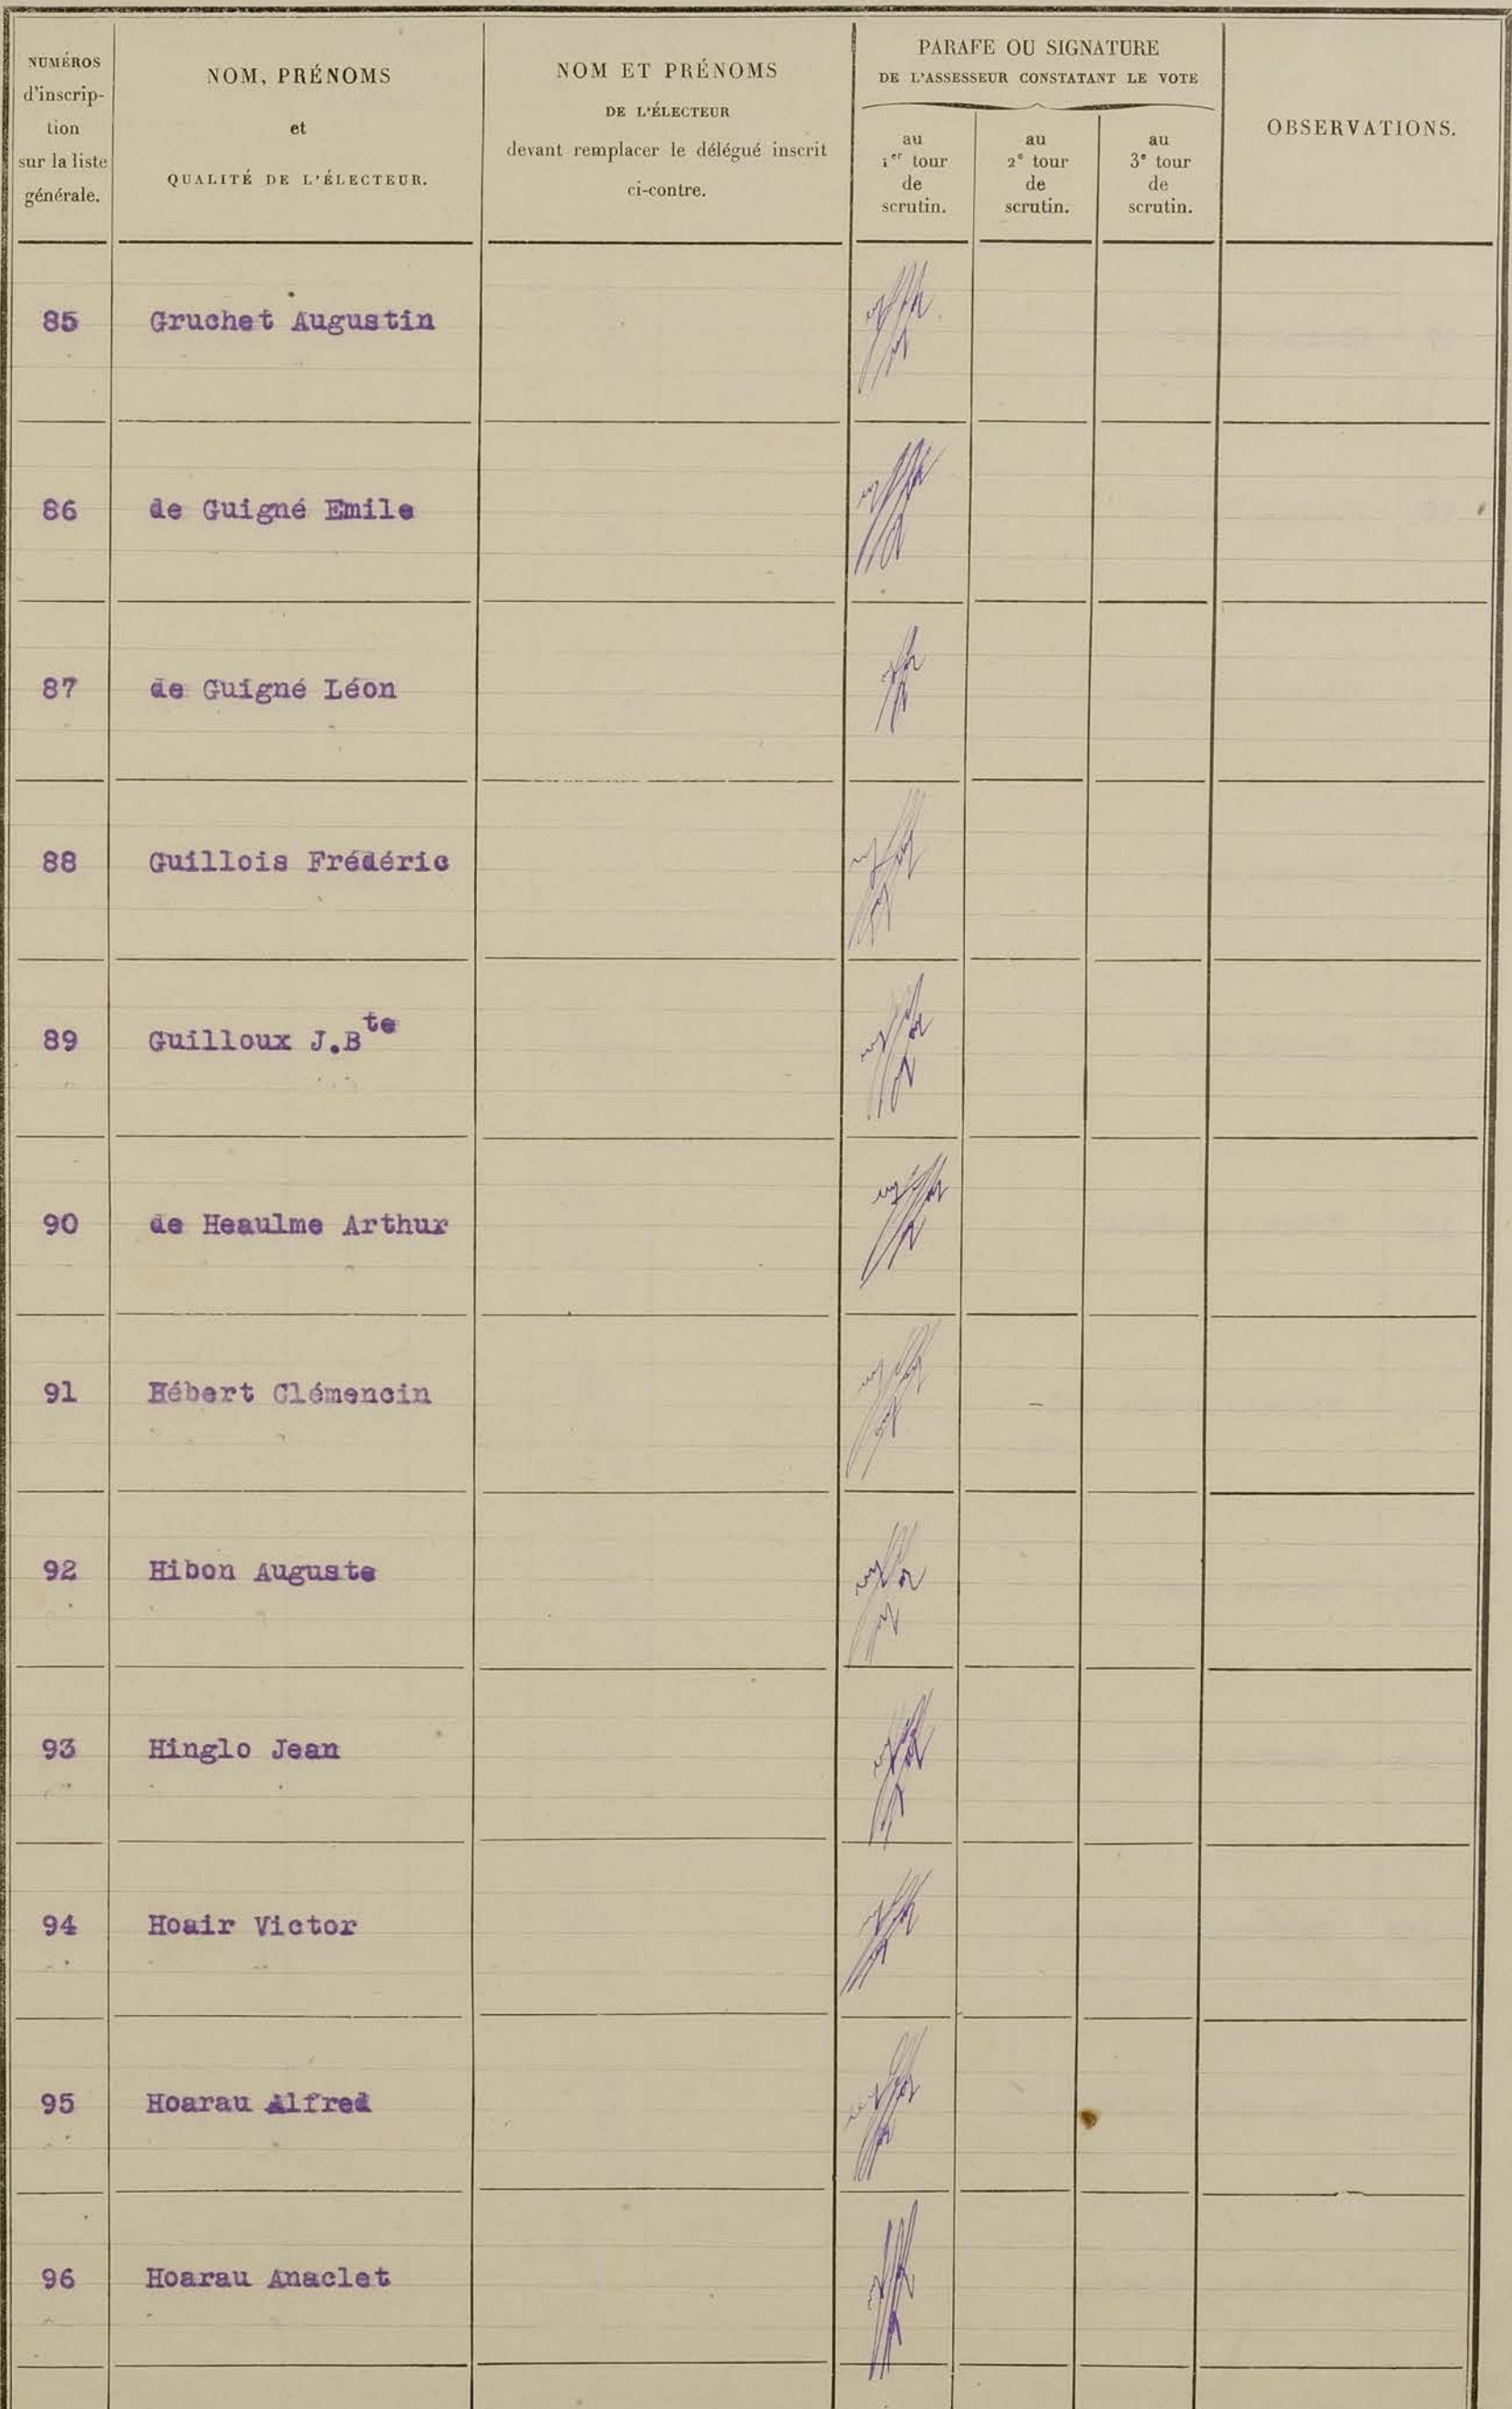 NUMÉROS
d'inscrip-
tion
sur la liste
générale.
NOM, PRÉNOMS
et
QUALITÉ DE L'ÉLECTEUR.
NOM ET PRÉNOMS
DE L'ÉLECTEUR
devant remplacer le délégué inscrit
ci-contre.
PARAFE OU SIGNATURE
DE L'ASSESSEUR CONSTATANT LE VOTE
au
1er tour
de
scrutin.
au
2e tour
de
scrutin.
au
3e tour
de
scrutin.
OBSERVATIONS.
85 Gruchet Augustin
86 de Guigné Emile
87 de Guigné Léon
88 Guillois Frédéric
89 Guilloux J.Bte
90 de Heaulme Arthur
91 Hébert Clémencin
92 Hibon Auguste
93 Hinglo Jean
94 Hoair Victor
95 Hoarau Alfred
96 Hoarau Anaclet